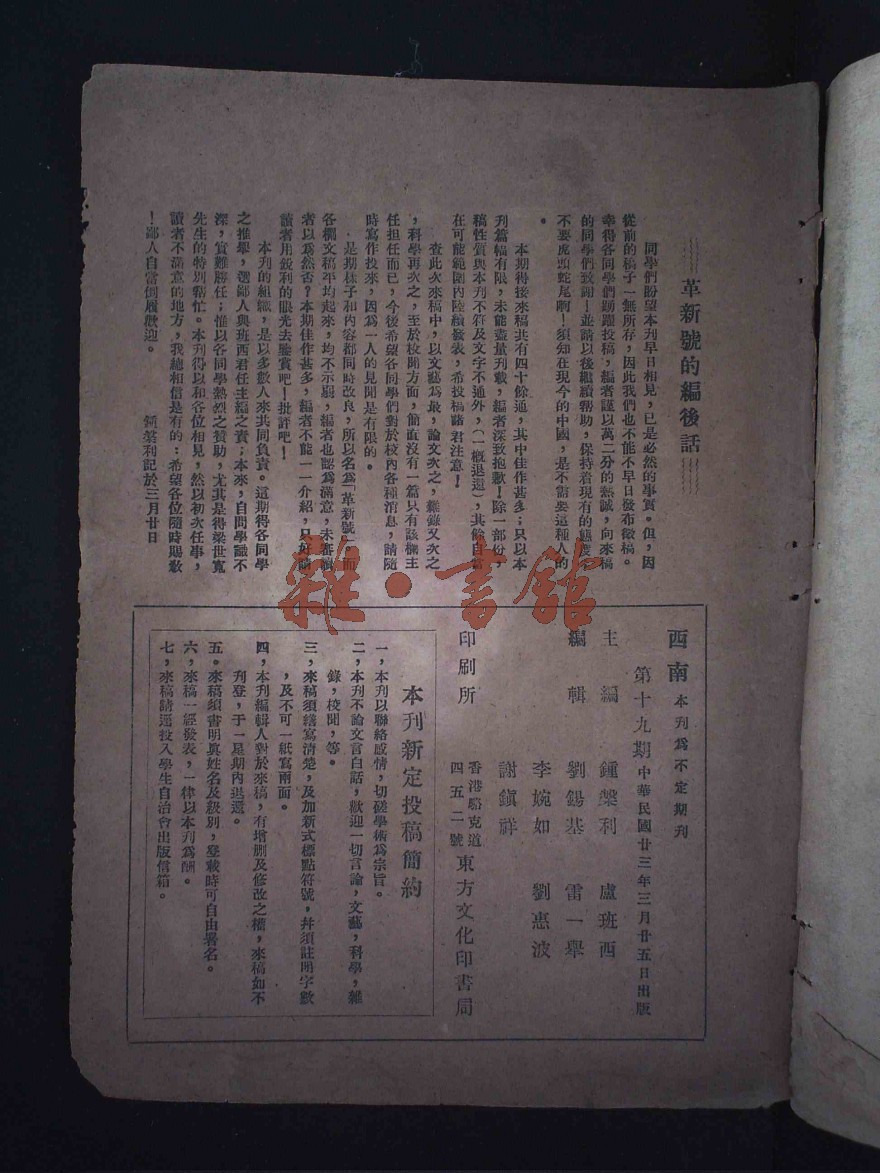 革新號的編後話
同學們盼望本刊早日相見，已是必然的事實。但，因
從前的稿子一無所存，因此我們也不能不早日發布徵稿。
幸得各同學們踴躍投稿，編者謹以萬二分的熱誠，向來稿
的同學們致謝！並請以後繼續幫助，保持着現有的態度，
不要虎頭蛇尾啊！須知在現今的中國，是不需要這種人的
。
本期得接來稿共有四十餘通，其中佳作甚多；只以本
刊篇幅有限，未能盡量刊載，編者深致抱歉！除一部份，
稿性質與本刊不符及文字不通外，（一概退還），其餘自當
在可能範圍內陸續發表，希投稿諸君注意！
查此次來稿中，以文藝爲最，論文次之，雜錄又次之
，科學再次之，至於校聞方面，簡直沒有一篇只有該欄主
任担任而已，今後希望各同學們對於校內各種消息，請隨
時寫作投來，因爲一人的見聞是有限的。
是期樣子和內容都同時改良，所以名爲「革新號」而
各欄文稿平均起來，均不示弱，編者也認爲滿意，未審讀
者以爲然否？本期佳作甚多，編者不能一一介紹，只好請
讀者用銳利的眼光去鑒賞吧！批評吧！
本刊的組織，是以多數人來共同負責。這期得各同學
之推舉，選鄙人與班西君任主編之責；本來，自問學識不
深，實難勝任；惟以各同學熱烈之贊助，尤其是得梁世寬
先生的特別幫忙。本刊得以和各位相見，然以初次任事，
讀者不滿意的地方，我總相信是有的；希望各位隨時賜教
！鄙人自當倒屣歡迎。
鍾榮利記於三月廿日
西南 本刊爲不定期刊
第十九期 中華民國廿三年三月廿五日出版
主編 鍾榮利 盧班西
編輯 劉錫基 雷一舉
李婉如 劉惠波
謝鎮祥
印刷所 香港駱克道四五二號 東方文化印書局
本刊新定投稿簡約
一，本刊以聯絡感情，切磋學術爲宗旨。
二，本刊不論文言白話，歡迎一切言論，文藝，科學，雜
錄，校聞，等。
三，來稿須繕寫清楚，及加新式標點符號，幷須註明字數
，及不可一紙寫兩面。
四，本刊編輯人對於來稿，有增删及修改之權，來稿如不
刊登，于一星期內退還。
五。來稿須書明真姓名及級別，登載時可自由署名。
六，來稿一經發表，一律以本刊爲酬。
七，來稿請逕投入學生自治會出版信箱。
雜·書館